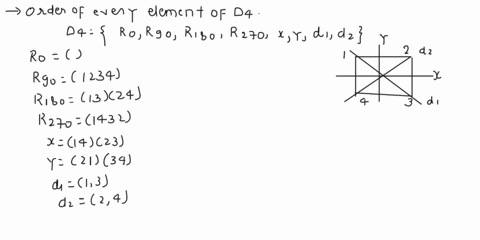 → Order of every element of D4.
D4 = { R0, R90, R180, R270, x, y, d1, d2 }
R0 = ( )
R90 = (1234)
R180 = (13)(24)
R270 = (1432)
x = (14)(23)
Y = (21)(34)
d1 = (1,3)
d2 = (2,4)
Y
1 2 d2
X
4 3 d1